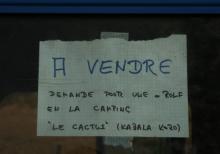 A VENDRE
DEMANDE POUR UNE
EN LA CAMPING
"LE CACTUS" (KABALA KORO)